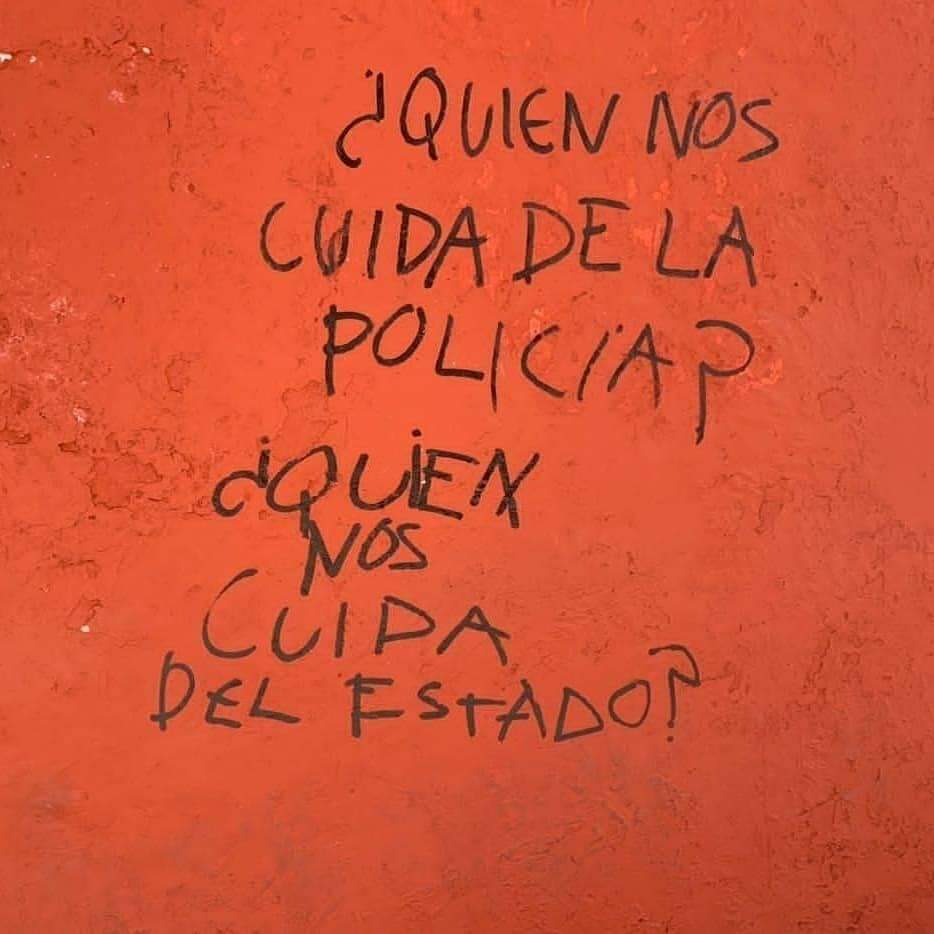 ¿QUIEN NOS
CUIDA DE LA
POLICIA?
¿QUIEN
NOS
CUIDA
DEL ESTADO?